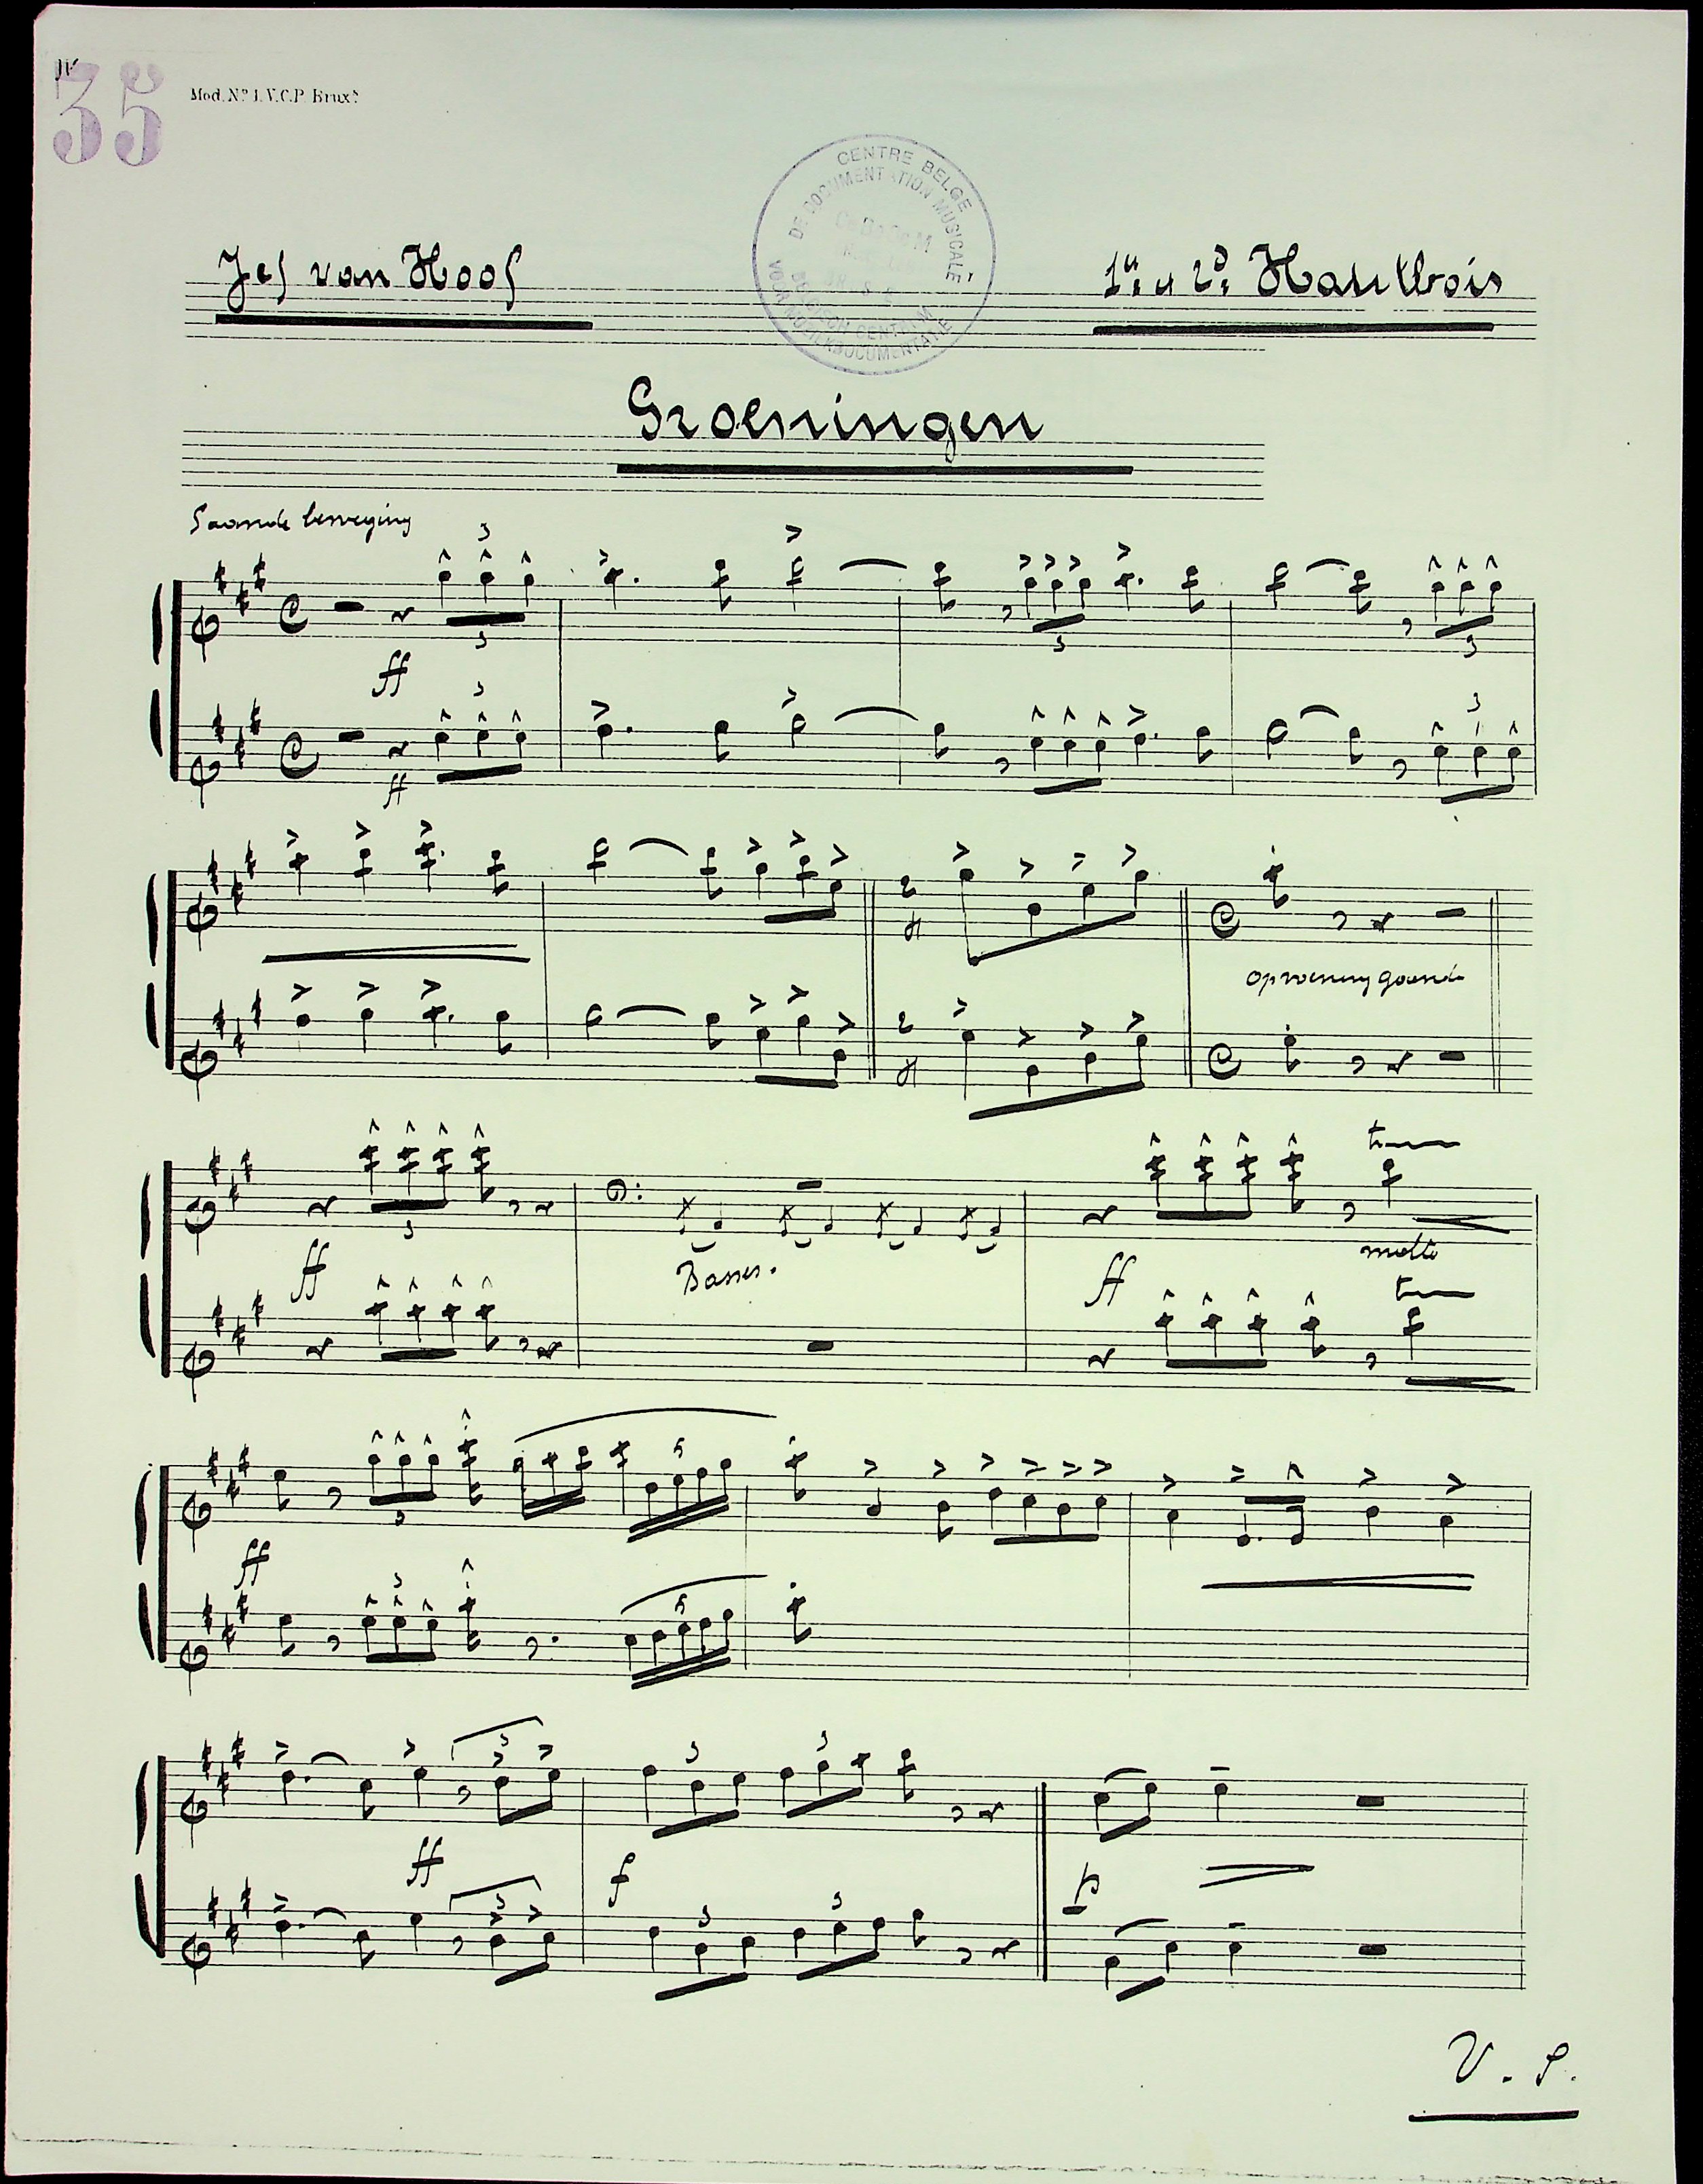 35
Mod. Nº 1. V.C.P. Bruxˢ
CENTRE BELGE
DE DOCUMENTATION MUSICALE
CeBeDeM
BELGISCH CENTRUM
VOOR MUZIEKDOCUMENTATIE
Jef van Hoof
1ᵉ & 2ᵈ Hautbois
Groeningen
Gaande beweging
3
3
3
3
ff
3
3
ff
2
4
opnieuw gaande
2
4
tr
3
ff
molto
Basses.
ff
tr
5
3
ff
3
5
3
3
3
ff
f
p
3
3
3
V. S.